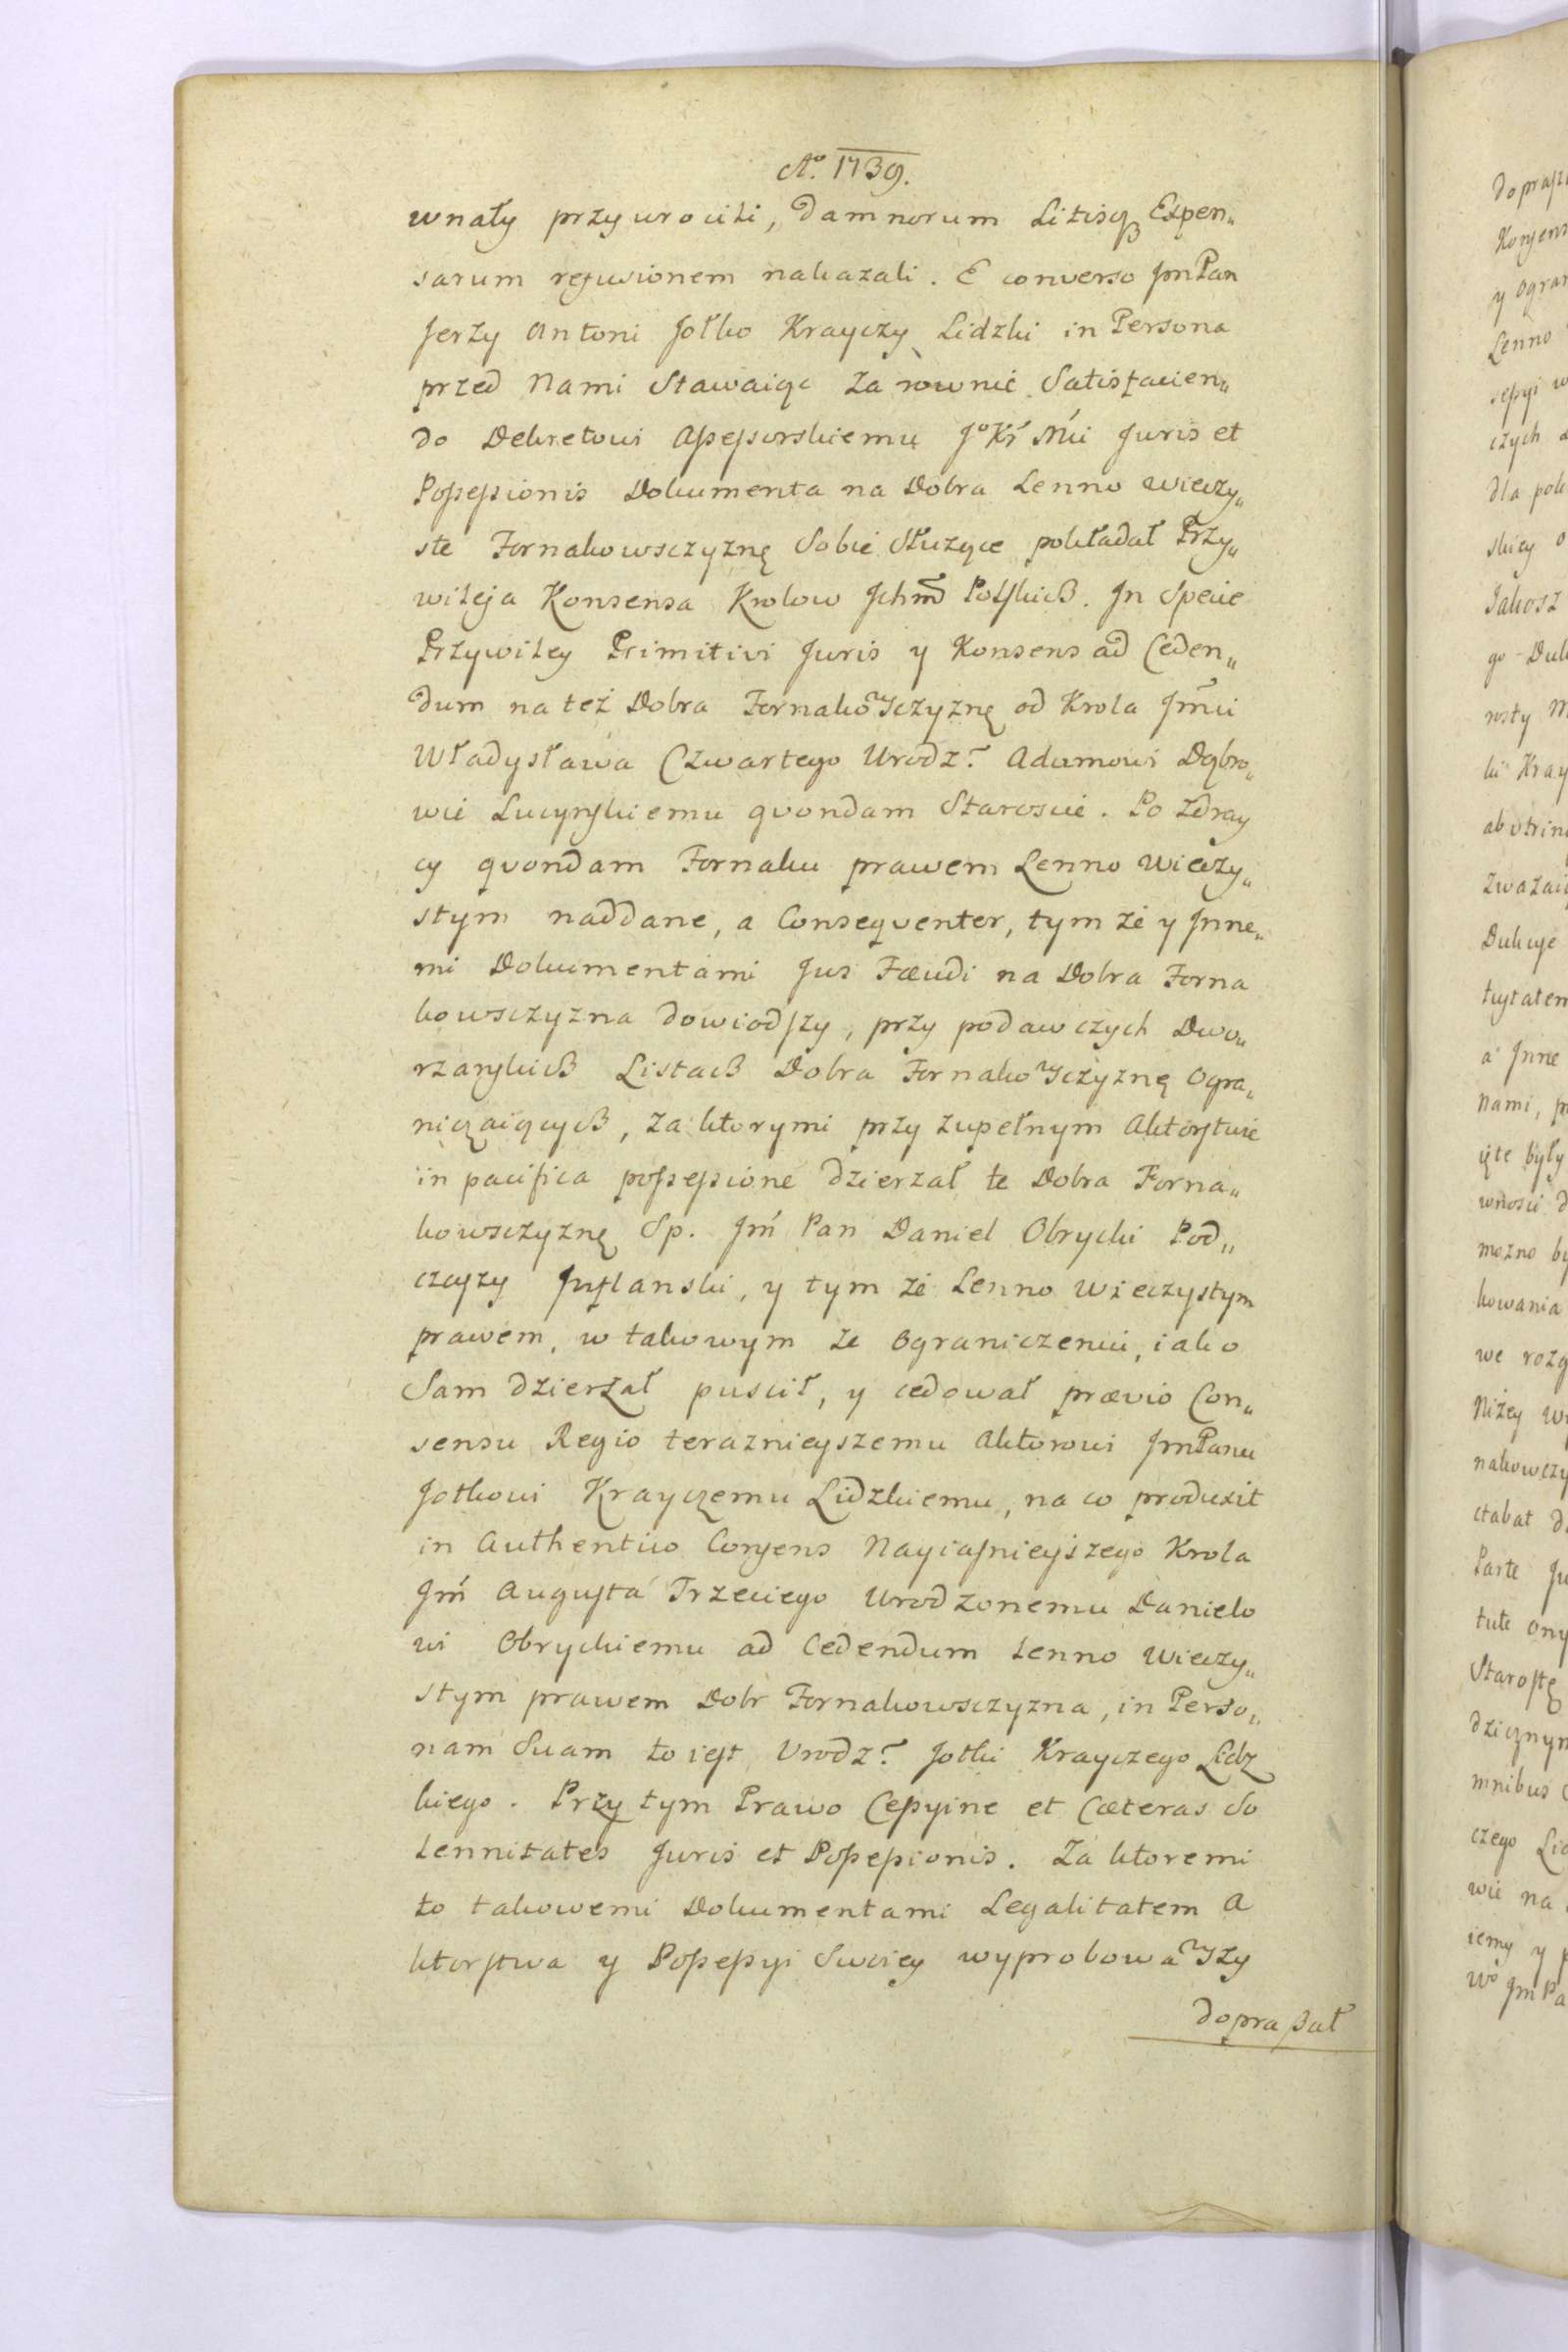 Ao. 1739.
wnały przywrocili, damnorum Litisq3 Expen„
sarum refusionem nakazali. E converso JmPan
Jerzy Antoni Jołko Krayczy Lidzki in Persona
przed Nami Stawaiąc za rownie Satisfacien„
do Dekretowi Assessorskiemu Jo Kr Mći Juris et
Possessionis Dokumenta na Dobra Lenno wieczy„
ste Fornakowszczyznę Sobie Służące pokładał Przy„
wileja Konsensa Krolow Jchmć Polskich. Jn Specie
Przywiley Primitivi Juris y Konsens ad Ceden„
dum na też Dobra Fornakowsczyznę od Krola Jmći
Władysława Czwartego Urodz: Adamowi Dąbro„
wie Lucynskiemu qvondam Staroscie. Po Zdray
cy qvondam Fornaku prawem Lenno Wieczy„
stym naddane, a Conseqventer, tym że y Jnne„
mi Dokumentami Jus Fæudi na Dobra Forna
kowsczyzna dowiodszy, przy podawczych Dwo„
rzanskich Listach Dobra Fornakowsczyznę Ogra„
niczaiących, za ktorymi przy zupełnym Aktorstwie
in pacifica possessione dzierzał te Dobra Forna„
kowsczyznę Sp. Jmć Pan Daniel Obrycki Pod„
czaszy Jnflanski, y tym że Lenno Wieczystym
prawem, w takowym że Ograniczeniu, iako
Sam dzierzał puscił, y cedował prævio Con„
sensu Regio teraznieyszemu Aktorowi JmPanu
Jołkowi Krayczemu Lidzkiemu, na co produxit
in Authentico Consens Nayiasnieyszego Krola
Jmć Augusta Trzeciego Urodzonemu Danielo
wi Obryckiemu ad Cedendum Lenno Wieczy„
stym prawem Dobr Fornakowsczyzna, in Perso„
nam Suam to iest Urodz: Jołki Krayczego Lidz
kiego. Przy tym Prawo Cessyine et Cæteras So
lennitates Juris et Possessionis. Za ktoremi
to takowemi Dokumentami Legalitatem A
ktorstwa y Possessyi Swoiey wyprobowawszy
dopraszał